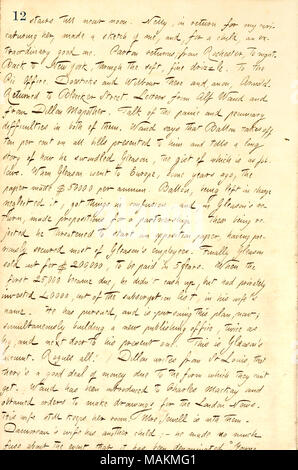 12 stairs till near noon. Nelly, in return for my
caricaturing her, made a sketch of me, and, for a child, an
traordinary good one. Parton returns from Rochester, to night.
Back to New York, through the soft, fine drizzle. To the
Pic Office. Dowricks and Wilbour there and anon, Arnold.
Returned to Bleecker Street. Letters from Alf Waud and
from Dillon Mapother. Talk of the panic and pecuniary
difficulties in both of them. Waud says that Ballou takes off
ten per cent on all bills presented to him and tells a long
story of how he swindled Gleason, the gist of which is as fol-
lows. When Gleason went to Europe, some years ago, the
paper made $50000 per annum. Ballou, being left in charge
neglected it, got things in confusion, and on Gleason's re-
turn, made propositions for a partnership. These being re-
jected he threatened to start an opposition paper, having pre-
viously secured most of Gleason's employees. Finally Gleason
sold out for $200000, to be paid in 5 years. When the
first 25,000 became due, he didn't cash up, but had privately
invested 20000, out of the subscription list, in his wife's
name. He has pursued, and is pursuing this plan, now,
simultaneously building a new publishing office, twice as
big, and next door to his present one. This is Gleason's
account. Rogues all! Dillon writes from St Louis, that
there's a good deal of money due to the firm which they can't
get. Waud has been introduced to Charles Mackay and
obtained orders to make drawings for the London News.
His wife still keeps her room. Mrs Jewell is with them.
Damoreau's wife has another child; he made so much
fuss about the event that it has been
alamy
Image ID: MAKMG1
www.alamy.com